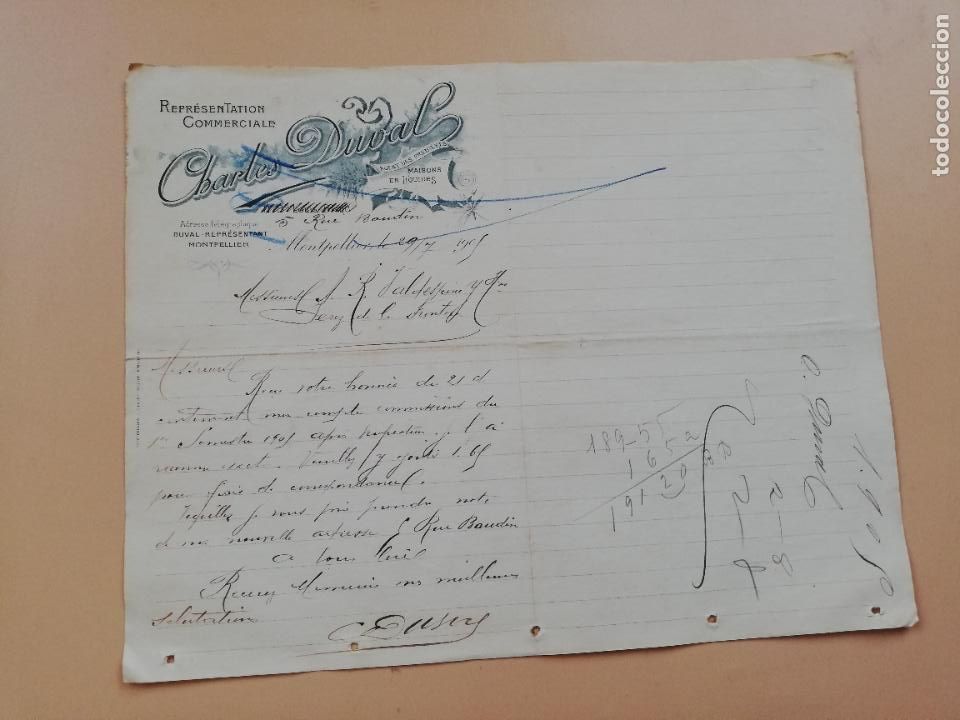 REPRÉSENTATION
COMMERCIALE
Charles Duval
MAISONS
EN LIQUIDES
5 Rue Baudin
Adresse Télégraphique
DUVAL-REPRÉSENTANT
MONTPELLIER
Montpellier le 29/7 1905
Messieurs A. R. Valdespino y Hno
Jerez de la Frontera
Messieurs
Reçu votre honorée du 21 ct
contenant mon compte commissions du
1er Semestre 1905 après inspection je l'ai
reconnu exact. Veuillez y 1.65
pour frais de correspondance.
Veuillez je vous prie prendre note
de ma nouvelle adresse 5 Rue Baudin
à tous
Recevez Messieurs mes meilleures
salutations
CDuval
189-55
1 65
191 20
C. Duval
2-8
1905
todocoleccion.net